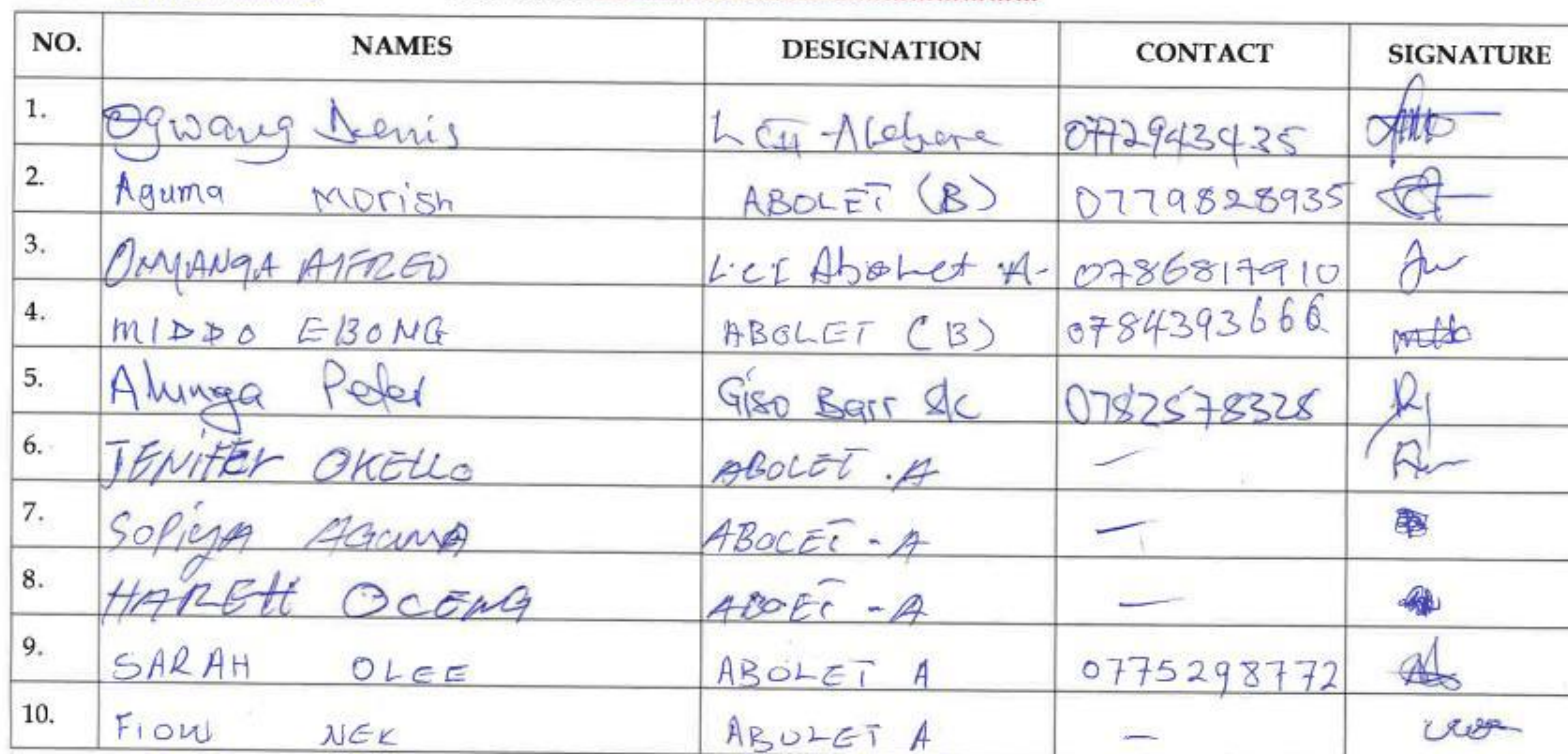 NO. NAMES DESIGNATION CONTACT SIGNATURE
1. Ogwang Denis LCII - Alebere 0772943435
2. Aguma Morish ABOLET (B) 0779828935
3. OMYANGA AlFRED L.CI Abolet A- 0786817910
4. MIDDO EBONG ABOLET (B) 0784393666
5. Alunga Peter Giso Barr S/C 0782578328
6. JENIFER OKELLO ABOLET .A —
7. SOPIYA AGUMA ABOCET - A —
8. OCENG ABOET - A —
9. SARAH OLEE ABOLET A 0775298772
10. NEK ABOLET A —